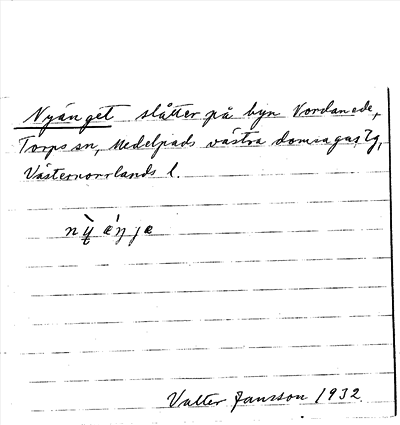 Nyänget slåtter på byn Nordanede,
Torps sn, Medelpads västra domsagas tg,
Västernorrlands l.
Valter Jansson 1932